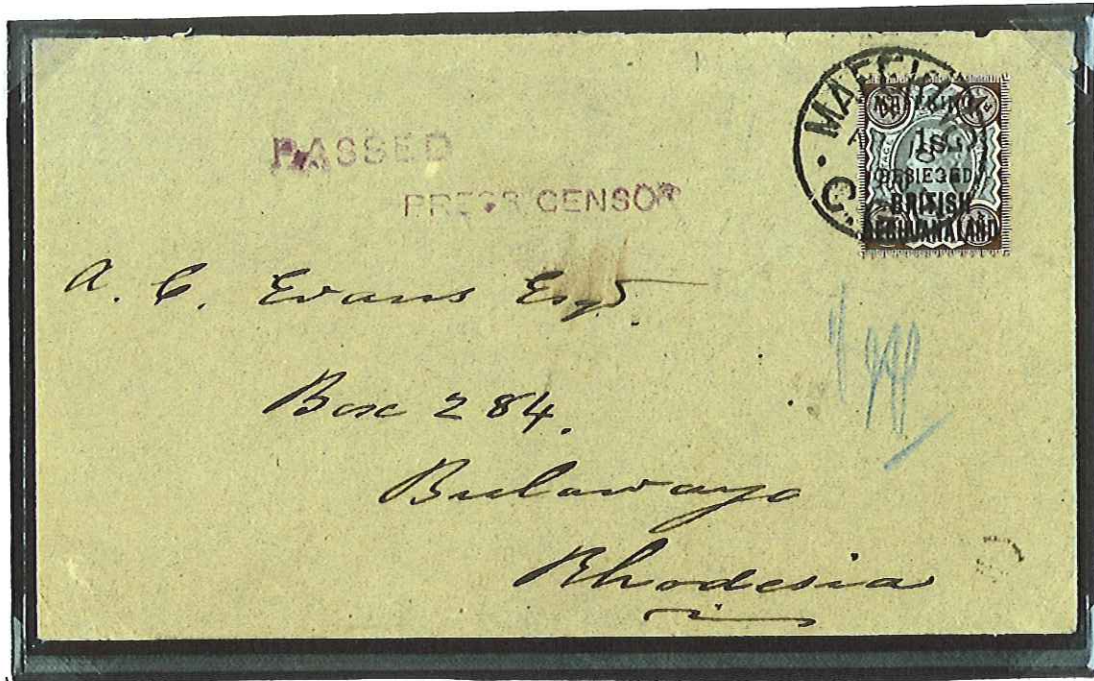 PASSED
PRESS CENSOR
MAFEKING
1s.
BESIEGED
BRITISH
BECHUANALAND
A. C. Evans Esqr.
Box 284.
Bulawayo
Rhodesia